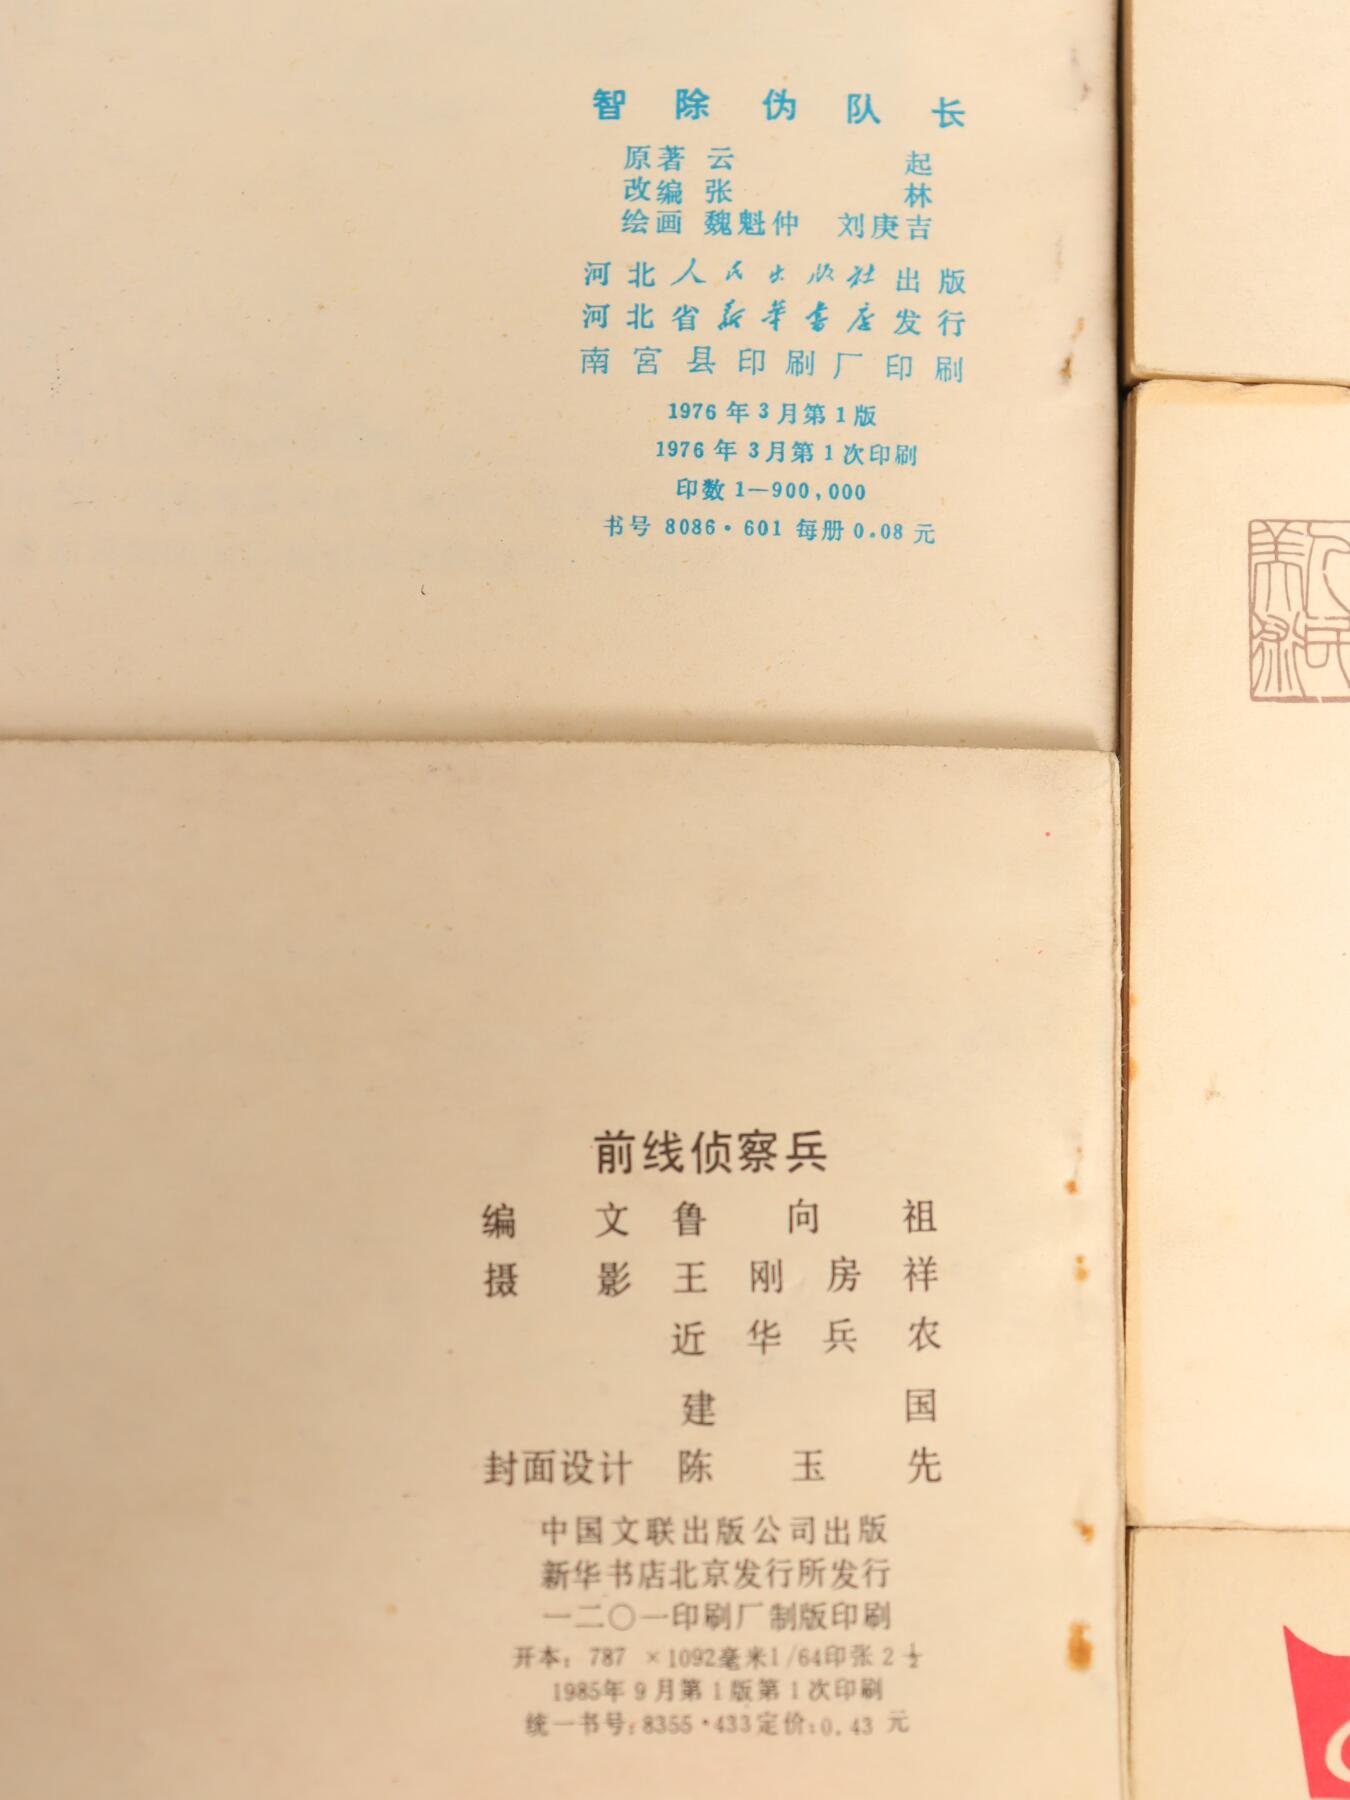 智除伪队长
原著 云起
改编 张林
绘画 魏魁仲 刘庚吉
河北人民出版社出版
河北省新华书店发行
南宮县印刷厂印刷
1976年3月第1版
1976年3月第1次印刷
印数1—900,000
书号 8086·601 每册0.08元
前线侦察兵
编文 鲁向祖
摄影 王刚 房祥
近华 兵农
建国
封面设计 陈玉先
中国文联出版公司出版
新华书店北京发行所发行
一二〇一印刷厂制版印刷
开本：787×1092毫米1/64印张2½
1985年9月第1版第1次印刷
统一书号：8355·433定价：0.43元